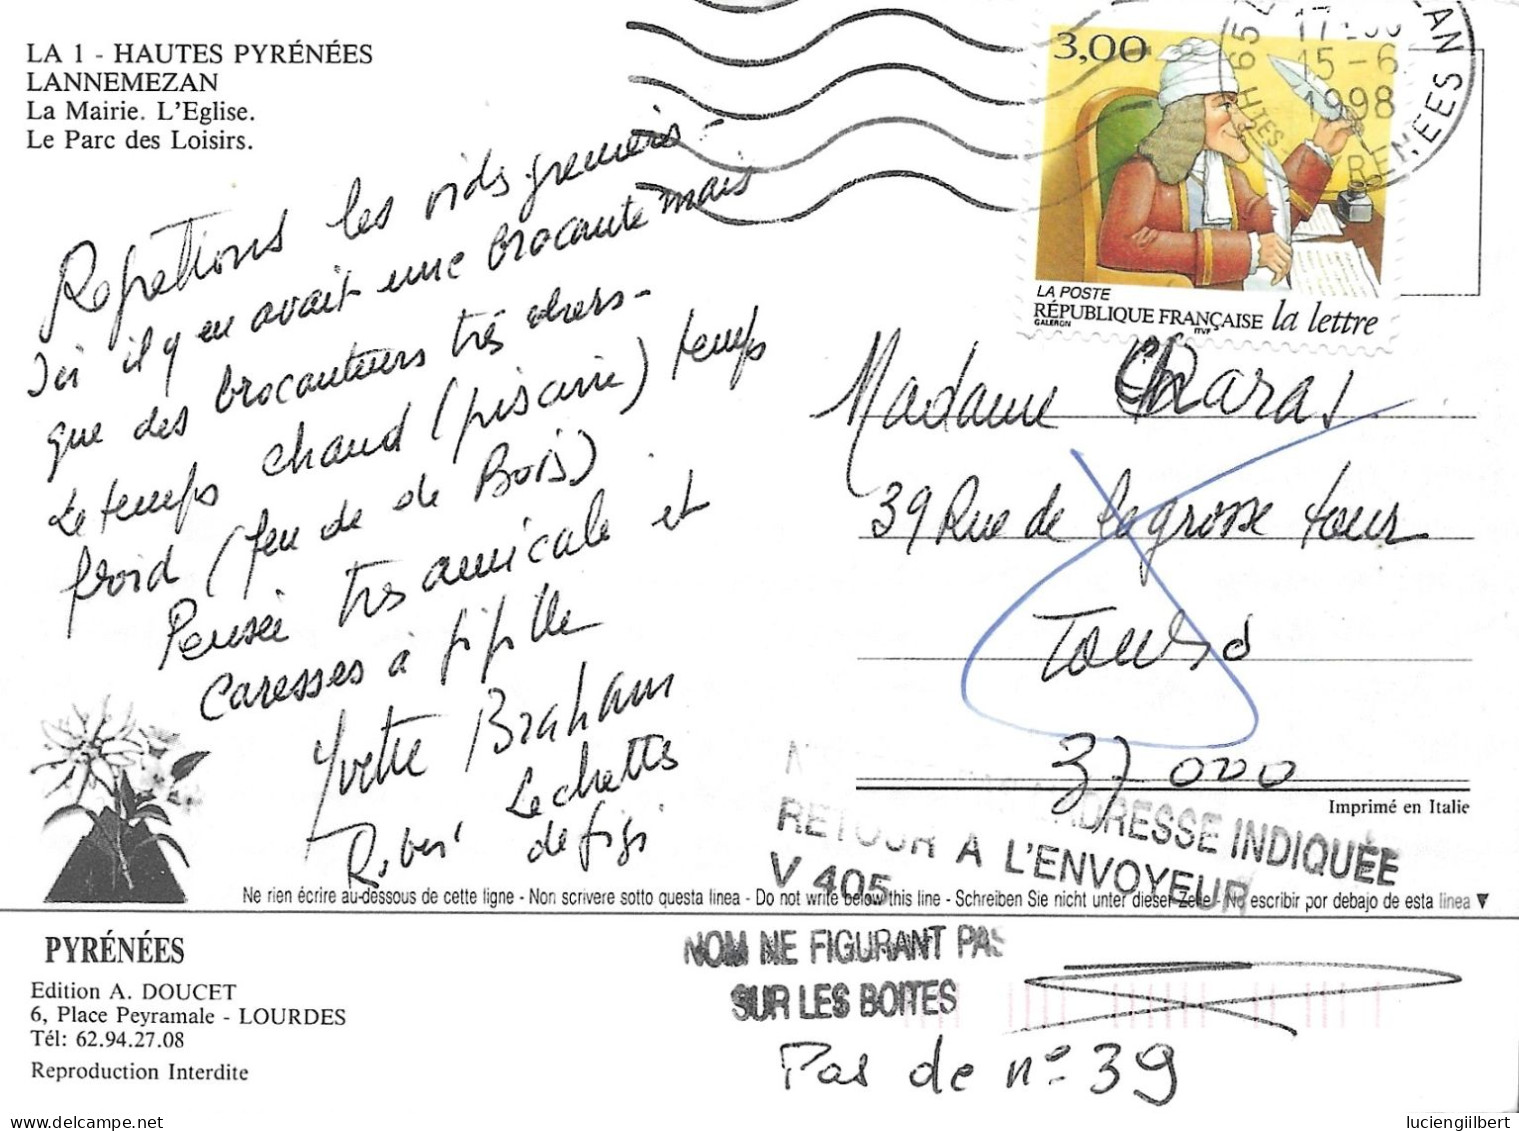 LA 1 - HAUTES PYRÉNÉES
LANNEMEZAN
La Mairie. L'Eglise.
Le Parc des Loisirs.
les vids-greniers -
Ici il y en avait une brocante mais
que des brocanteurs très chers -
Le temps chaud (piscine) temps
froid (feu de de Bois)
Pensée très amicale et
Caresses à pipille
Yvette Braham
Lechatts
de figi
3,00
LA POSTE
RÉPUBLIQUE FRANÇAISE la lettre
GALERON ITVF
15-6
1998
Madame Charas
39 Rue de la grosse tour
Tours
37000
Imprimé en Italie
ADRESSE INDIQUÉE
RETOUR A L'ENVOYEUR
V 405
Ne rien écrire au-dessous de cette ligne - Non scrivere sotto questa linea - Do not write below this line - Schreiben Sie nicht unter dieser Zeile - No escribir por debajo de esta linea ▼
PYRÉNÉES
Edition A. DOUCET
6, Place Peyramale - LOURDES
Tél: 62.94.27.08
Reproduction Interdite
NOM NE FIGURANT PAS
SUR LES BOITES
Pas de n° 39
delcampe.net
luciengilbert